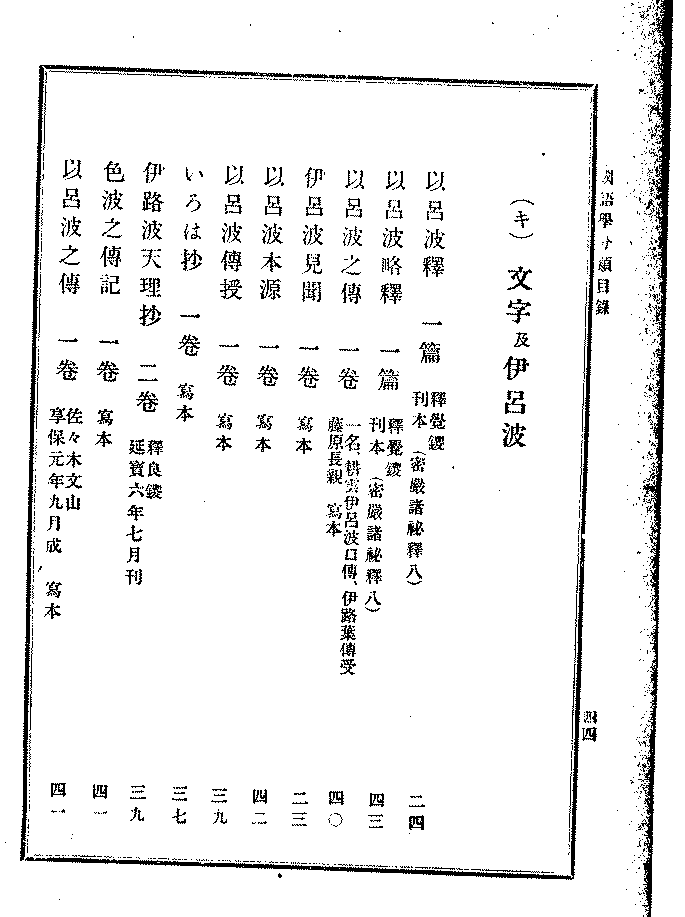 國語學分類目錄
四四
(キ) 文字及伊呂波
以呂波釋 一篇 釋覺鑁
刊本 (密嚴諸祕釋八) 二四
以呂波略釋 一篇 釋覺鑁
刊本 (密嚴諸祕釋八) 四三
以呂波之傳 一卷 一名、耕雲伊呂波口傳、伊路葉傳受
藤原長親 寫本 四〇
伊呂波見聞 一卷 寫本 二三
以呂波本源 一卷 寫本 四二
以呂波傳授 一卷 寫本 三九
いろは抄 一卷 寫本 三七
伊路波天理抄 二卷 釋良鑁
延寶六年七月刊 三九
色波之傳記 一卷 寫本 四一
以呂波之傳 一卷 佐々木文山
享保元年九月成 寫本 四一